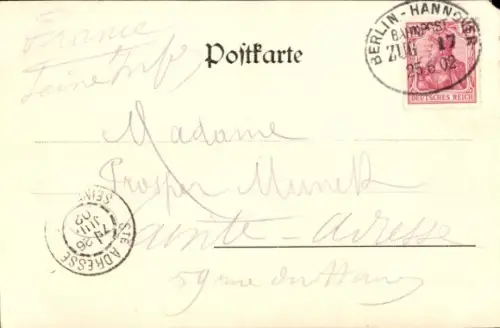 France
Seine Inf
Postkarte
BERLIN - HANNOVER
BAHNPOST
ZUG 17
25.6.02
DEUTSCHES REICH
Madame
Prosper Munck
Sainte-Adresse
59 rue du Havre
STE ADRESSE
7E 26
JUIN
02
SEINE